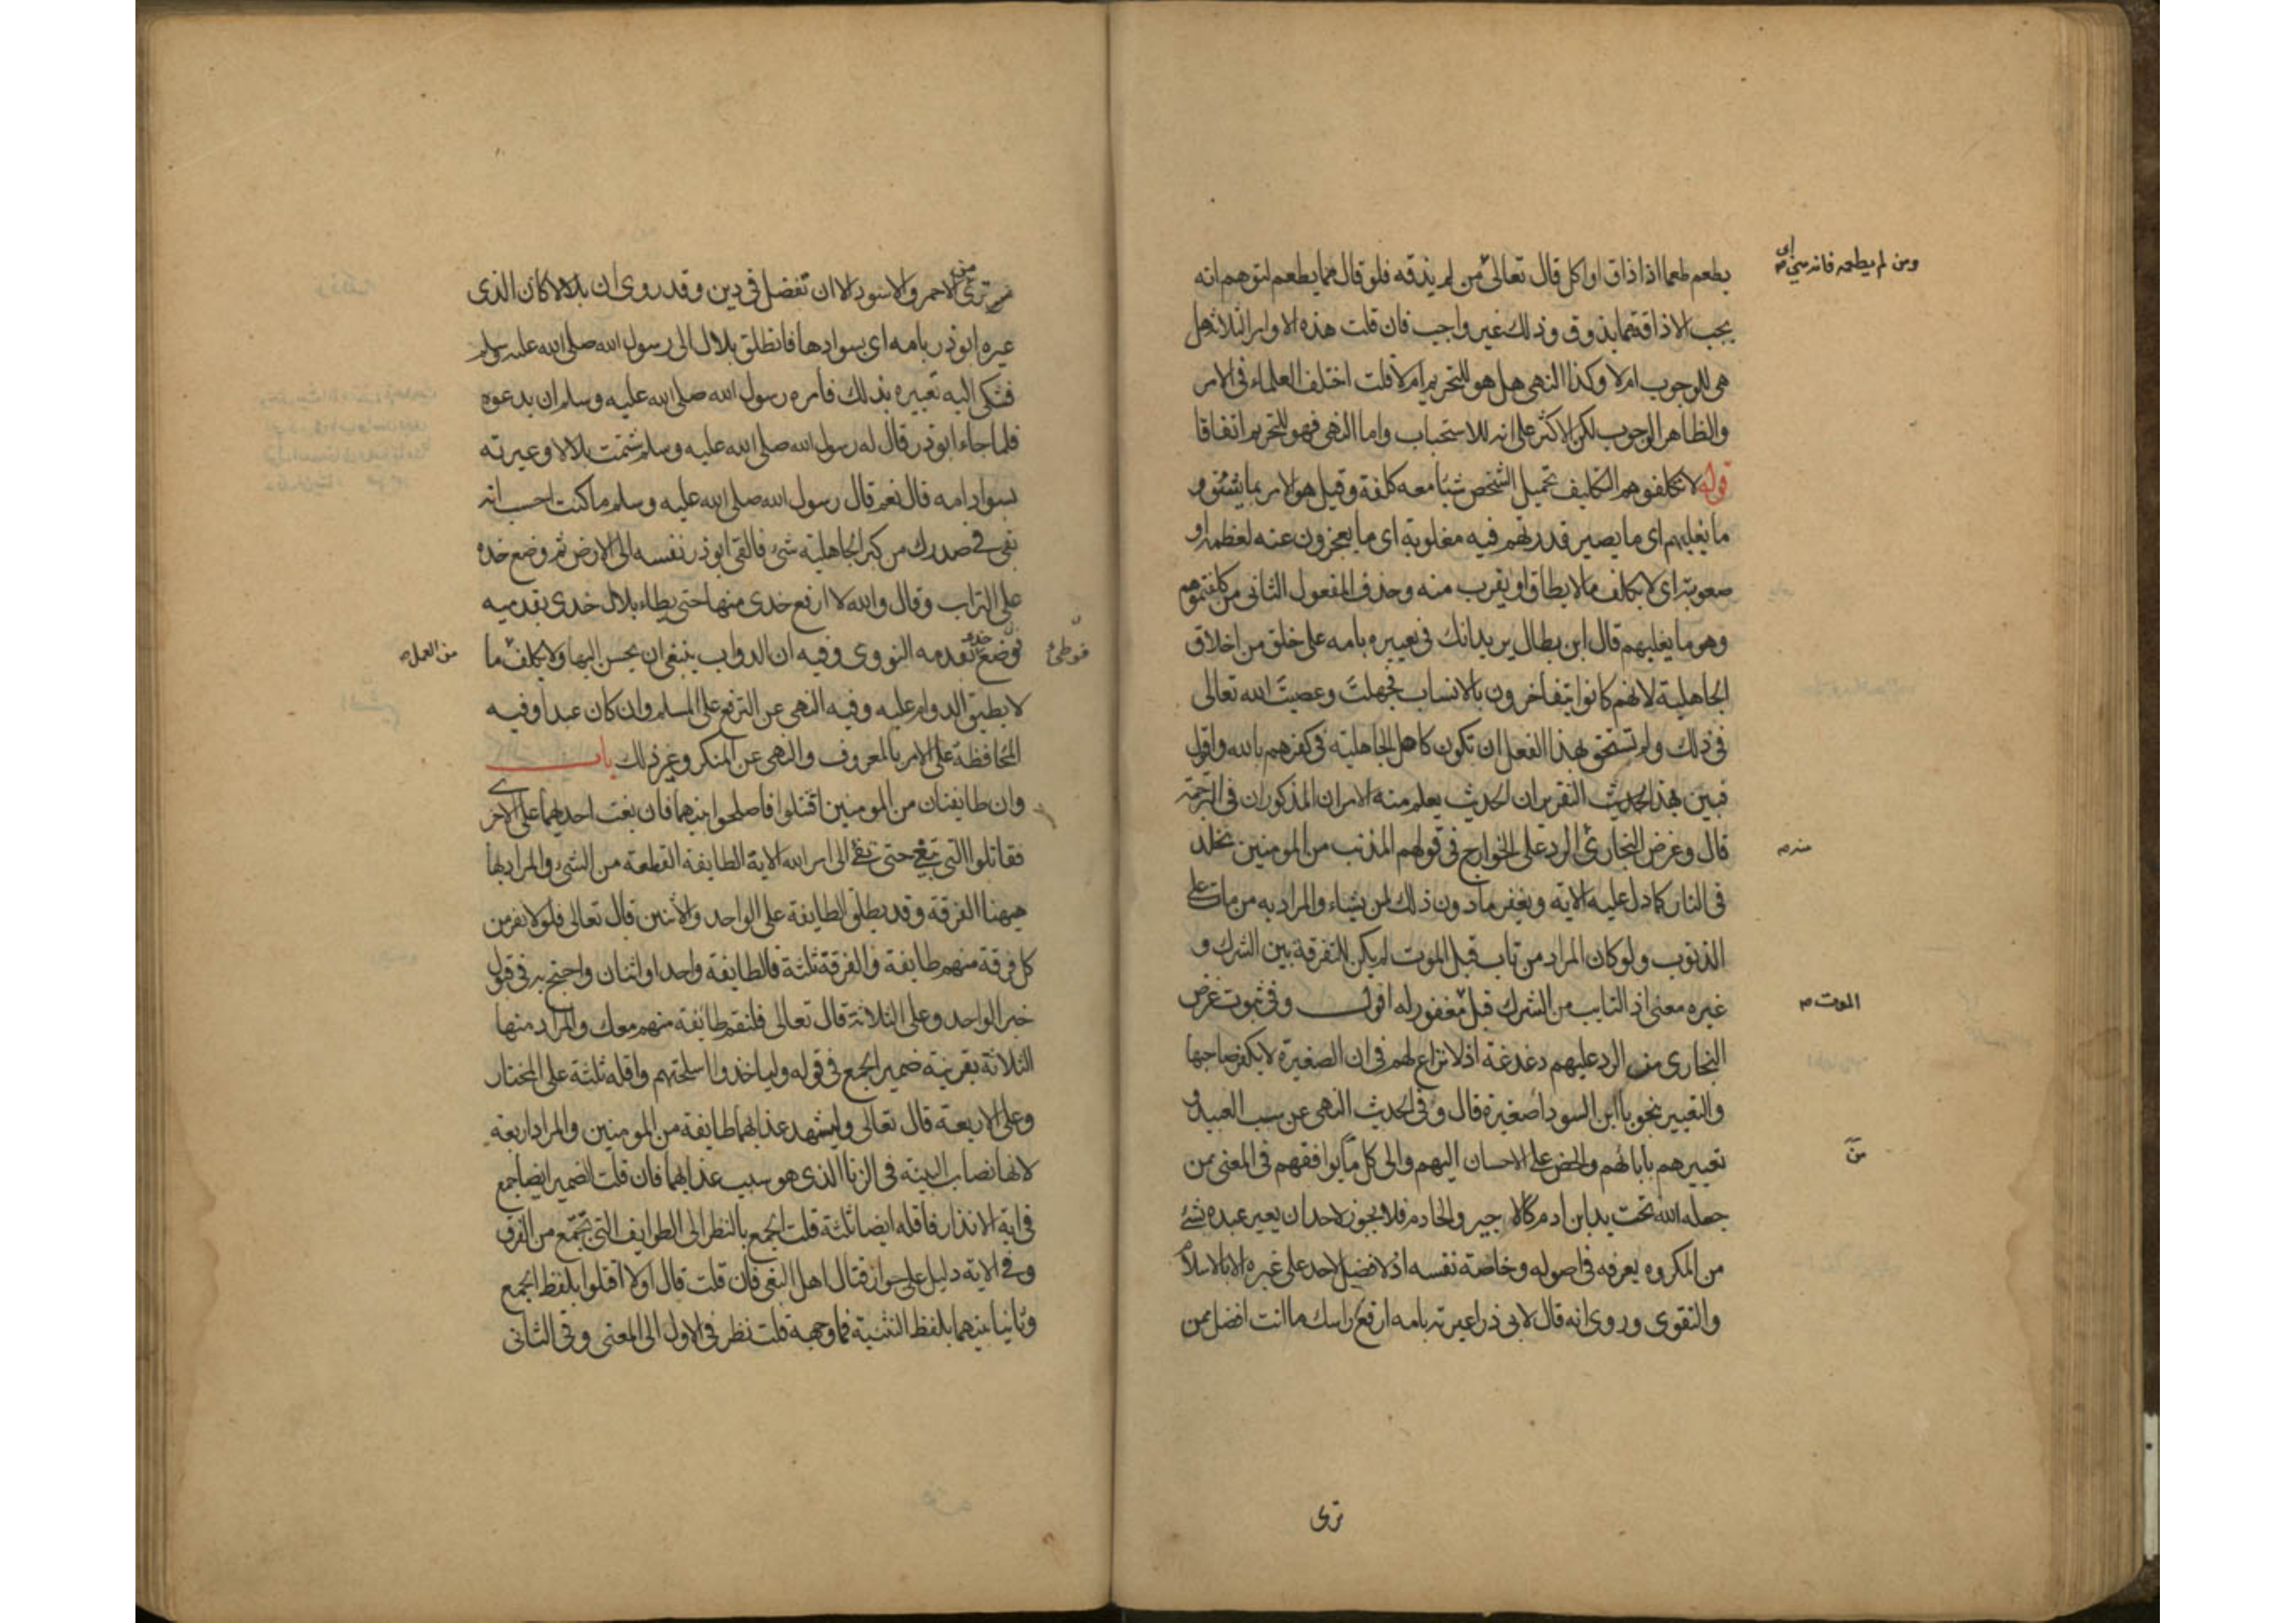 يطعم طعما اذا ذاق او اكل قال تعالى من لم يذقه فلو قال مما يطعم لتوهم انه
ومن لم يطعمه فانه مني اى
يجب الاذاقة مما يذوق وذلك غير واجب فان قلت هذه الاوامر الثلاثة هل
هي للوجوب ام لا وكذا النهى هل هو للتحريم ام لا قلت اختلف العلماء في الامر
والظاهر الوجوب لكن الاكثر على انه للاستحباب واما النهى فهو للتحريم اتفاقا
قوله لا تكلفوهم التكليف تحميل الشخص شيئا معه كلفة وقيل هو الامر بما يشق و
ما يغلبهم اى ما يصير قدرتهم فيه مغلوبة اى ما يعجزون عنه لعظمه او
صعوبته اى لا يكلف ما لا يطاق او يقرب منه وحذف المفعول الثانى من كلفتموهم
وهو ما يغلبهم قال ابن بطال يريد انك في تعييره بامه على خلق من اخلاق
الجاهلية لانهم كانوا يتفاخرون بالانساب فجهلت وعصيت الله تعالى
في ذلك ولم تستحق بهذا الفعل ان تكون كاهل الجاهلية في كفرهم بالله واقول
فبين بهذا الحديث التقرير ان الحديث يعلم منه الامران المذكوران في الترجمة
قال وغرض البخارى الرد على الخوارج في قولهم المذنب من المومنين يخلد
منه
في النار كما دل عليه الاية ويغفر ما دون ذلك لمن يشاء والمراد به من مات على
الذنوب ولو كان المراد من تاب قبل الموت لم يكن للتفرقة بين الشرك و
غيره معنى اذ التايب من الشرك قبل مغفور له اقول وفي ثبوت غرض
الموت
البخارى من الرد عليهم دغدغة اذ لا نزاع لهم في ان الصغيرة لا يكفر صاحبها
والتعيير بنحو يا ابن السودا صغيرة قال وفي الحديث النهى عن سب العبيد و
تعييرهم بابائهم والحض على الاحسان اليهم والى كل ما يوافقهم في المعنى ممن
من
جعله الله تحت يد ابن ادم كالاجير والخادم فلا يجوز لاحد ان يعير عبده بشئ
من المكروه يعرفه في اصوله وخاصة نفسه اذ لا فضل لاحد على غيره الا بالاسلام
والتقوى وروى انه قال لابى ذر اعيرته بامه ارفع راسك ما انت افضل ممن
ترى
ترى من الاحمر والاسود الا ان تفضل في دين وقد روى ان بلالا كان الذى
عيره ابوذر بامه اى بسوادها فانطلق بلال الى رسول الله صلى الله عليه وسلم
فشكى اليه تعييره بذلك فأمره رسول الله صلى الله عليه وسلم ان يدعوه
فلما جاء ابوذر قال له رسول الله صلى الله عليه وسلم شتمت بلالا وعيرته
بسواد امه قال نعم قال رسول الله صلى الله عليه وسلم ما كنت احسب انه
بقى في صدرك من كبر الجاهلية شئ فالقى ابوذر نفسه الى الارض ثم وضع خده
على التراب وقال والله لا ارفع خدى منها حتى يطاء بلال خدى بقدميه
فوضع خده بقدمه النووى وفيه ان الدواب ينبغى ان يحسن اليها ولا يكلف ما
فوطى
من العمل
لا يطيق الدوام عليه وفيه النهى عن الترفع على المسلم وان كان عبدا وفيه
المحافظة على الامر بالمعروف والنهى عن المنكر وغير ذلك باب
وان طايفتان من المومنين اقتتلوا فاصلحوا بينهما فان بغت احديهما على الاخرى
فقاتلوا التى تبغى حتى تفئ الى امر الله الاية الطايفة القطعة من الشئ والمراد بها
هيهنا الفرقة وقد يطلق الطايفة على الواحد والاثنين قال تعالى فلولا نفر من
كل فرقة منهم طايفة والفرقة ثلثة فالطايفة واحد او اثنان واحتج به في قبول
خبر الواحد وعلى الثلاثة قال تعالى فلتقم طائفة منهم معك والمراد منها
الثلاثة بقرينة ضمير الجمع في قوله ولياخذوا اسلحتهم واقله ثلثة على المختار
وعلى الاربعة قال تعالى وليشهد عذابهما طايفة من المومنين والمراد اربعة
لانها نصاب البينة في الزنا الذى هو سبب عذابهما فان قلت الضمير ايضا جمع
في اية الانذار فاقله ايضا ثلثة قلت الجمع بالنظر الى الطوايف التى تجتمع من الفرق
وفي الاية دليل على جواز قتال اهل البغى فان قلت قال اولا اقتتلوا بلفظ الجمع
وثانيا بينهما بلفظ التثنية فما وجهه قلت نظر في الاول الى المعنى وفي الثانى